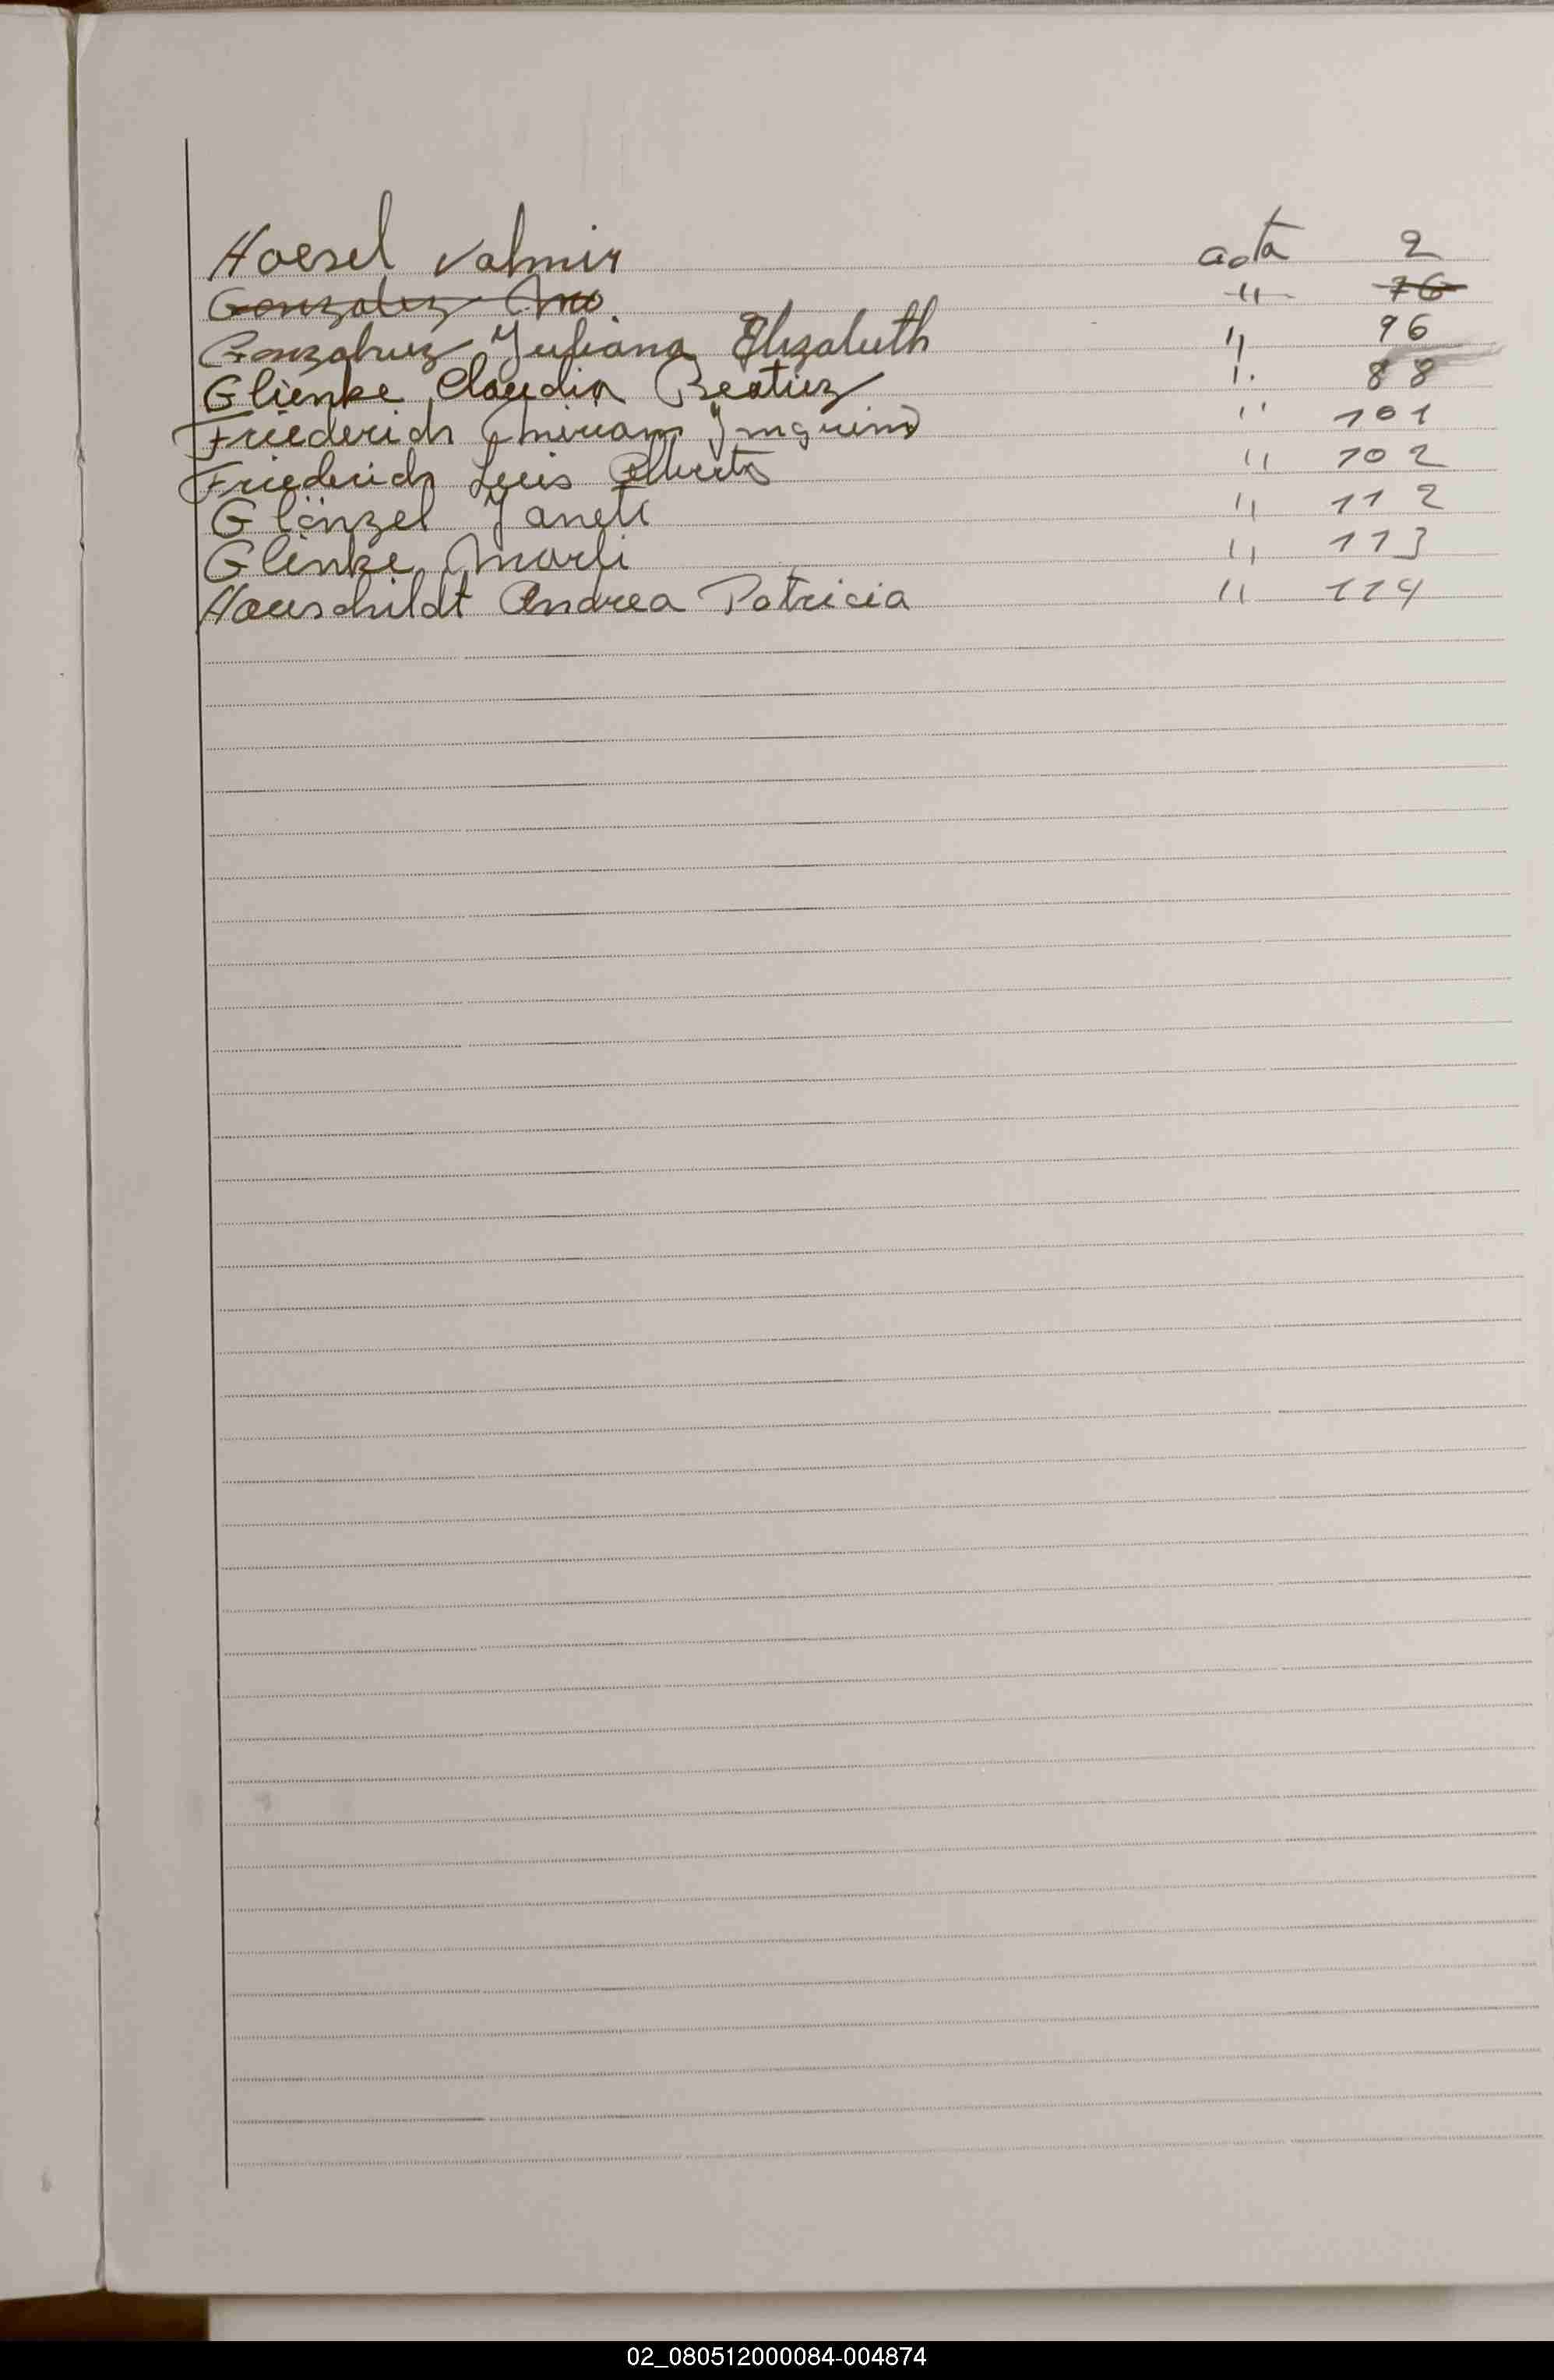 Hoesel Valmir acta 2
Gonzalez Ma " 76
Gonzalez Juliana Elizabeth " 96
Glienke Claudia Beatriz " 88
Friederich Miriam " 101
Friederich Luis Alberto " 102
Glänzel Janeti " 112
Glinke Marli " 113
Hauschildt Andrea Patricia " 114
02_080512000084-004874